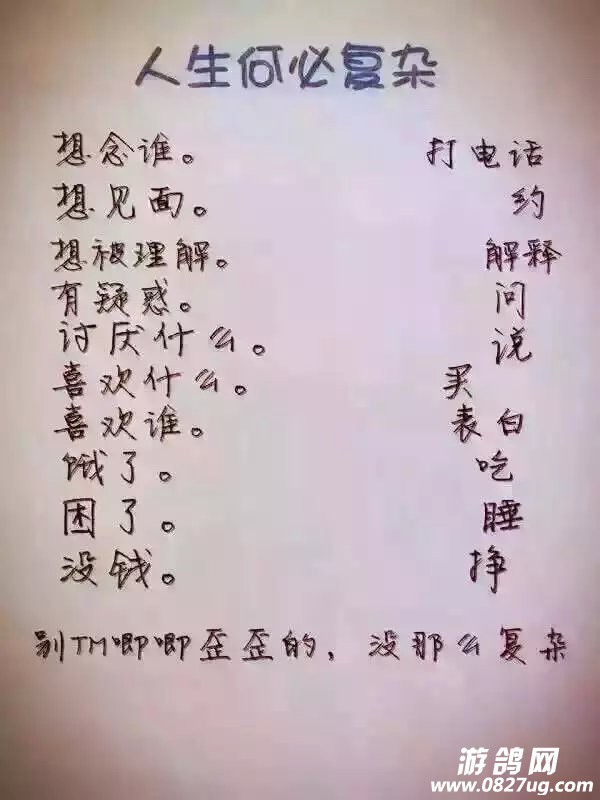 人生何必复杂
想念谁。 打电话
想见面。 约
想被理解。 解释
有疑惑。 问
讨厌什么。 说
喜欢什么。 买
喜欢谁。 表白
饿了。 吃
困了。 睡
没钱。 挣
别TM唧唧歪歪的，没那么复杂
游鸽网
www.0827ug.com